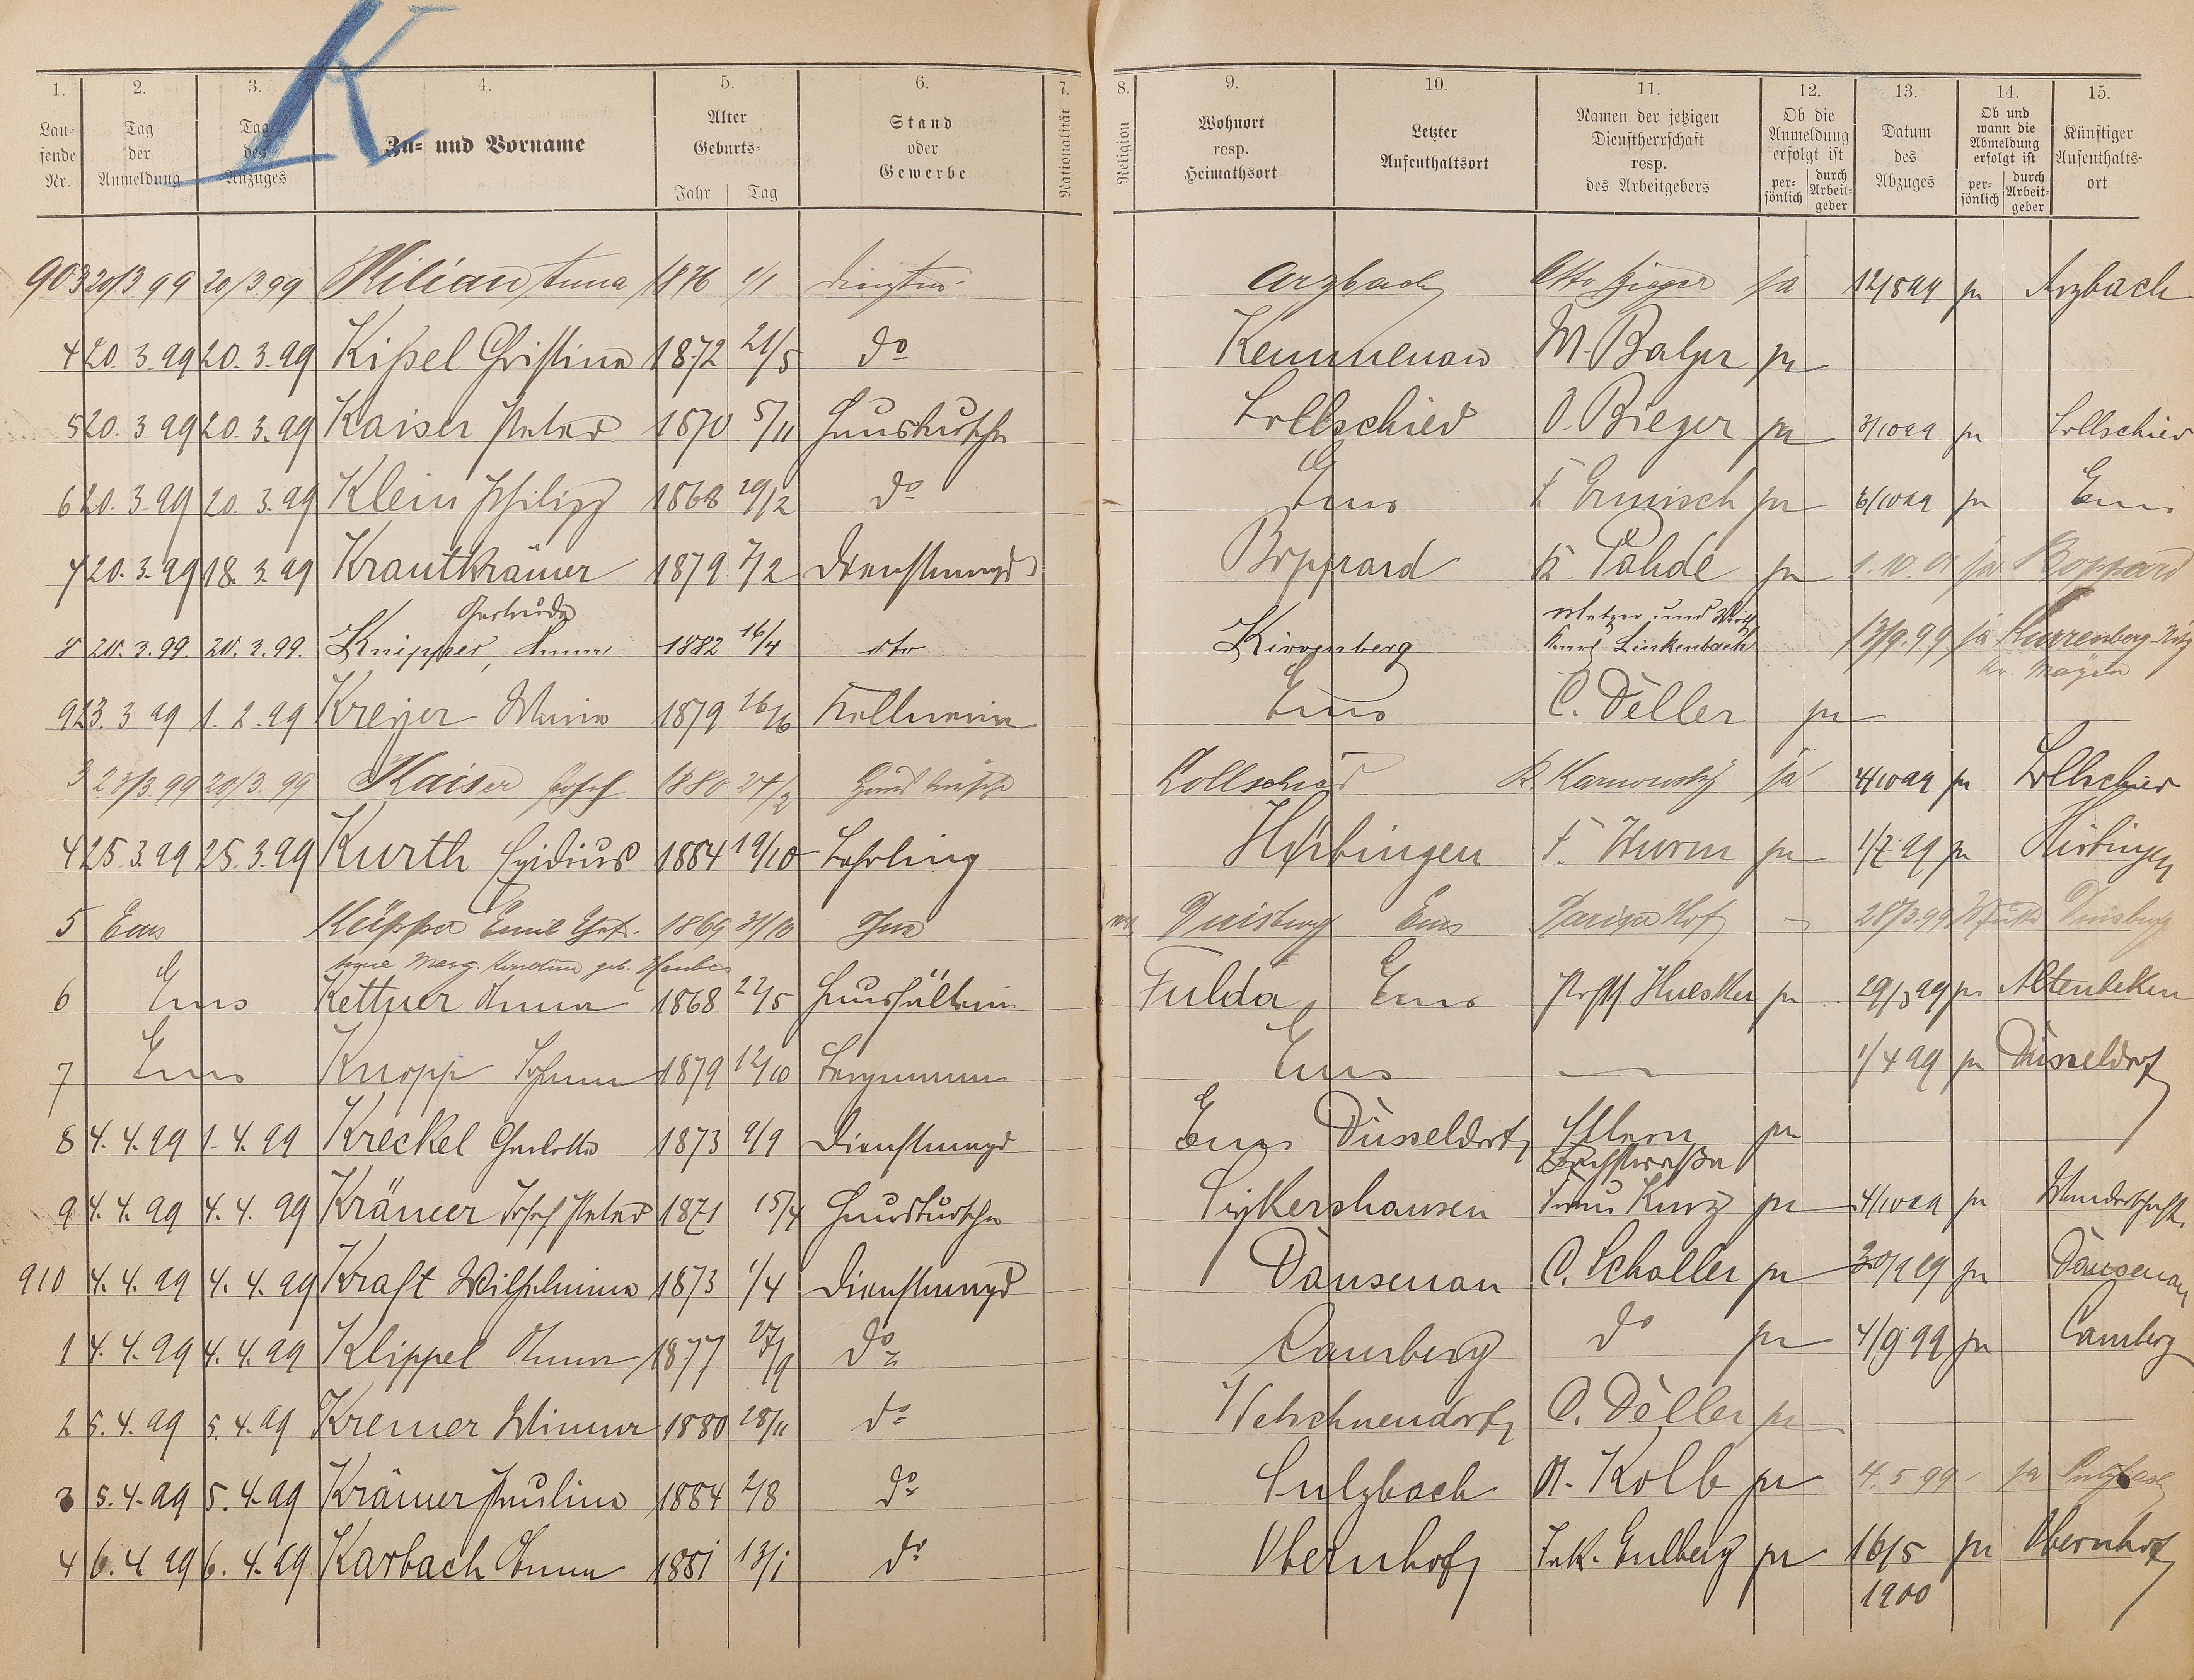 K
1. 2. 3. 4. 5. 6. 7. 8. 9. 10. 11. 12. 13. 14. 15.
Lau-fende Nr. Tag der Anmeldung Tag des Anzuges Zu- und Vorname Alter Geburts- Jahr Tag Stand oder Gewerbe Nationalität Religion Wohnort resp. Heimathsort Letzter Aufenthaltsort Namen der jetzigen Dienstherrschaft resp. des Arbeitgebers Ob die Anmeldung erfolgt ist per-sönlich durch Arbeit-geber Datum des Abzuges Ob und wann die Abmeldung erfolgt ist per-sönlich durch Arbeit-geber Künftiger Aufenthalts-ort
903 20/3 99 20/3 99 Kilian Anna 1876 1/1 Arzbach Otto ja Arzbach
4 20. 3. 99 20. 3. 99 Kißel Christina 1872 21/5 do Kemmenau M. Balzer ja
5 20. 3 99 20. 3. 99 Kaiser Peter 1870 5/11 Hausbursche Lollschied O. Bieger ja 3/10 99 ja Lollschied
6 20. 3. 99 20. 3. 99 Klein Philipp 1868 29/12 do Ems F. Ermisch ja 6/10 99 ja Ems
7 20. 3. 99 18. 3. 99 Krautkrämer 1879 7/2 Dienstmagd Boppard K. Pahde ja ja Boppard
Gertrude
8 20. 3. 99. 20. 3. 99. Knipper, Anna 1882 16/4 dto Kirrenberg Metzger und Wirth
Karl Linkenbach 13/9. 99 ja Kürrenberg
Kr. Mayen
9 23. 3 99 1. 2. 99 Kreyer Maria 1879 26/6 Kellnerin Ems C. Döller ja
3 23/3 99 20/3. 99 Kaiser Josef 1880 24/2 Hausbursche Lollschied R. Karnowsky ja 4/10 99 ja Lollschied
4 25 3. 99 25. 3. 99 Kurth Egidius 1884 19/10 Lehrling Hirbingen F. Wurm ja 1/7 99 ja Hirbingen
5 Ems Küpper Emil 1869 31/10 Duisburg Ems Pariser Hof 28/3. 99 Duisburg
Marg. geb.
6 Ems Kettner Anna 1868 22/5 Haushälterin Fulda Ems Huesker ja 29/3 99 ja Altenbeken
7 Ems Knopp Johann 1879 12/10 Bergmann Ems — 1/4 99 ja Düsseldorf
8 4. 4. 99 1. 4. 99 Kreckel Charlotte 1873 9/9 Dienstmagd Ems Düsseldorf Eltern ja
Bachstraße
9 4. 4. 99 4. 4. 99 Krämer Josef Peter 1871 15/4 Hausbursche Frau Kurz ja 4/10 99 ja Wanderschaft
910 4. 4. 99 4. 4. 99 Kraft Wilhelmina 1873 1/4 Dienstmagd Dausenau C. Scholler ja 30/9 99 ja Dausenau
1 4. 4. 99 4. 4. 99 Klippel Anna 1877 27/9 do Camberg do ja 4/9 99 ja Camberg
2 5. 4. 99 5. 4. 99 Kremer Minna 1880 28/11 do Welschneudorf C. Döller ja
3 5. 4. 99 5. 4. 99 Krämer Paulina 1884 2/8 do Sulzbach A. Kolb ja 4. 5. 99. ja Sulzbach
4 6. 4. 99 6. 4. 99 Karbach Anna 1881 13/1 do Obernhof Eulberg ja 16/5 ja Obernhof
1900